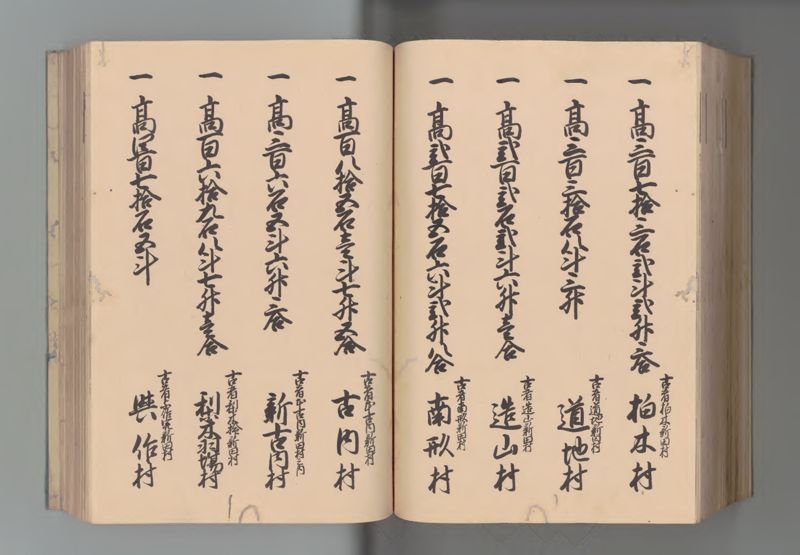 一 高三百七拾三石弐斗弐升三合
古者柏木新田村
柏木村
一 高三百三拾石八斗三升
古者道地新田村
道地村
一 高弐百弐石弐斗六升壱合
古者造山新田村
造山村
一 高弐百七拾五石六斗弐升八合
古者南形新田村
南形村
一 高百八拾五石壱斗七升五合
古者古内新田村
古内村
一 高三百六石五斗六升三合
古者古内新田村之内
新古内村
一 高百六拾九石八斗七升壱合
古者新田村
利木羽場村
一 高百七拾石五斗
古者新田村
興作村